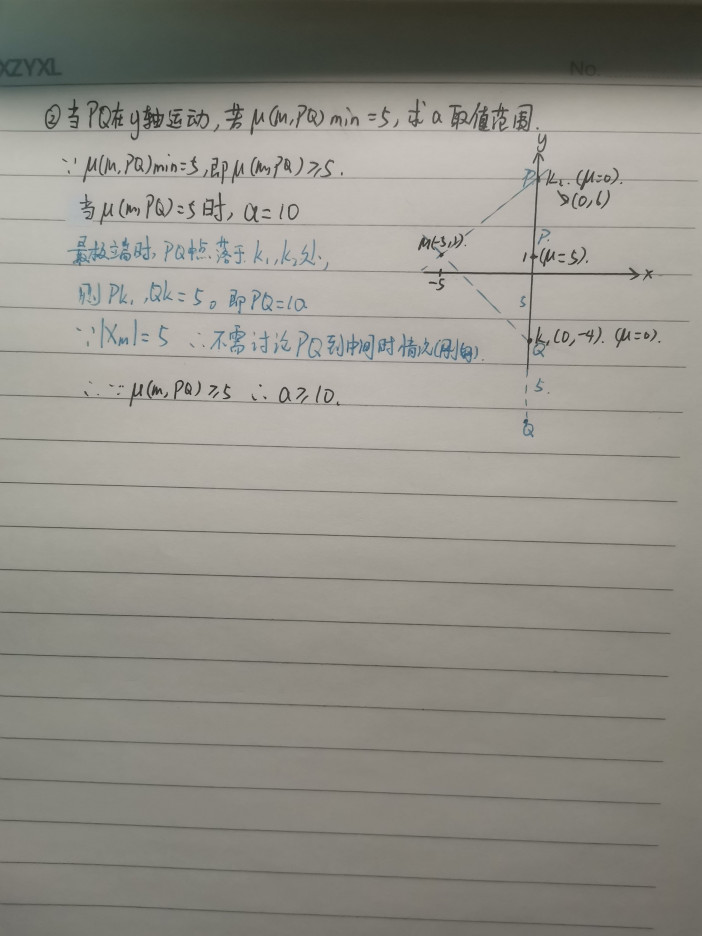 XZYXL
No.
②当PQ在y轴运动,若μ(M,PQ)min=5,求a取值范围.
∵μ(M,PQ)min=5,即μ(M,PQ)≥5.
当μ(M,PQ)=5时,a=10
最极端时,PQ中点落于k₁,k₂处,
则Pk₁,Qk=5。即PQ=10
∵|Xm|=5 ∴不需讨论PQ到中间时情况
∴∵μ(M,PQ)≥5 ∴a≥10.
y
P
k₂.(μ=0).
(0,6)
P.
1
(μ=5).
x
-5
5
k₁(0,-4).(μ=0).
Q
5.
Q